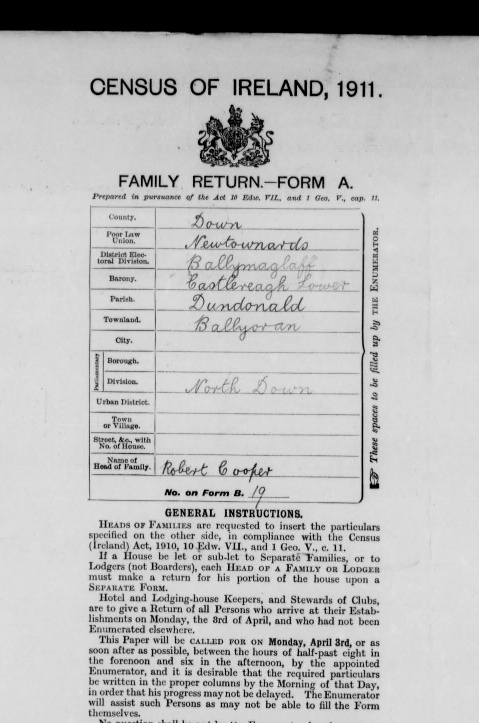 CENSUS OF IRELAND, 1911.
FAMILY RETURN.—FORM A.
Prepared in pursuance of the Act 10 Edw. VII., and 1 Geo. V., cap. 11.
County. Down
Poor Law Union. Newtownards
District Electoral Division. Ballymaglaff
Barony. Castlereagh Lower
Parish. Dundonald
Townland. Ballyoran
City.
Parliamentary
Borough.
Division. North Down
Urban District.
Town or Village.
Street, &c., with No. of House.
Name of Head of Family. Robert Cooper
No. on Form B. 19
These spaces to be filled up by THE ENUMERATOR.
GENERAL INSTRUCTIONS.
HEADS OF FAMILIES are requested to insert the particulars
specified on the other side, in compliance with the Census
(Ireland) Act, 1910, 10 Edw. VII., and 1 Geo. V., c. 11.
If a House be let or sub-let to Separate Families, or to
Lodgers (not Boarders), each HEAD OF A FAMILY OR LODGER
must make a return for his portion of the house upon a
SEPARATE FORM.
Hotel and Lodging-house Keepers, and Stewards of Clubs,
are to give a Return of all Persons who arrive at their Estab-
lishments on Monday, the 3rd of April, and who had not been
Enumerated elsewhere.
This Paper will be CALLED FOR ON Monday, April 3rd, or as
soon after as possible, between the hours of half-past eight in
the forenoon and six in the afternoon, by the appointed
Enumerator, and it is desirable that the required particulars
be written in the proper columns by the Morning of that Day,
in order that his progress may not be delayed. The Enumerator
will assist such Persons as may not be able to fill the Form
themselves.